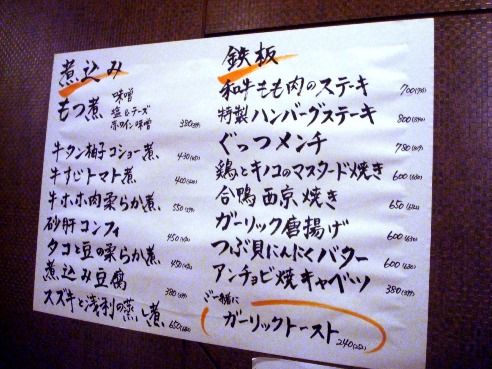 煮込み
もつ煮 味噌
塩&チーズ
赤ワイン味噌 380(399)
牛タン柚子コショー煮 430(452)
牛すじトマト煮 400(420)
牛ホホ肉柔らか煮 550(578)
砂肝コンフィ 450(473)
タコと豆の柔らか煮 450(473)
煮込み豆腐 380(399)
スズキと浅利の蒸し煮 650(683)
鉄板
和牛もも肉のステーキ 700(735)
特製ハンバーグステーキ 800(840)
ぐっつメンチ 780(819)
鶏とキノコのマスタード焼き 600(630)
合鴨西京焼き 650(683)
ガーリック唐揚げ 600(630)
つぶ貝にんにくバター 600(630)
アンチョビ焼キャベツ 380(399)
ご一緒に
ガーリックトースト 240(252)